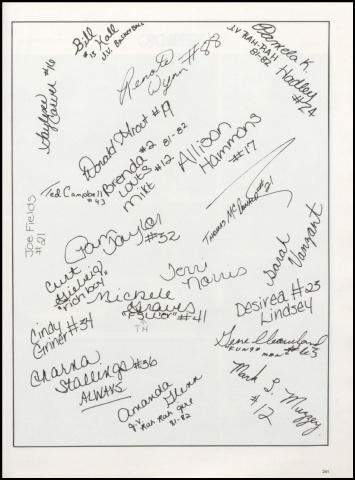 Bill Hall
#13
J.V. BASKETBALL
Renate
Wynn #88
J.V. RAH-RAH
81-82
Pamela K.
Hadley
#24
#16
Donald Stroat #19
Brenda #2
81-82
Loves #12
Mikt
Allison
Hammons
#17
Ted Campbell
#43
Thomas McDonald #21
Joe Fields
#21
Pam Taylor
#32
Sarah
Vanzant
Curt
"rich boy"
Terri
Norris
Michele
Graves
"Flower" #41
TH
Desired #25
Lindsey
Cindy
Griner #34
Gene Cleaveland
FUNGO MAN #63
Charna
Stallings #36
ALWAYS
Mark L. Muzzey
#12
Amanda Glenn
J.V. Rah Rah girl
81-82
241